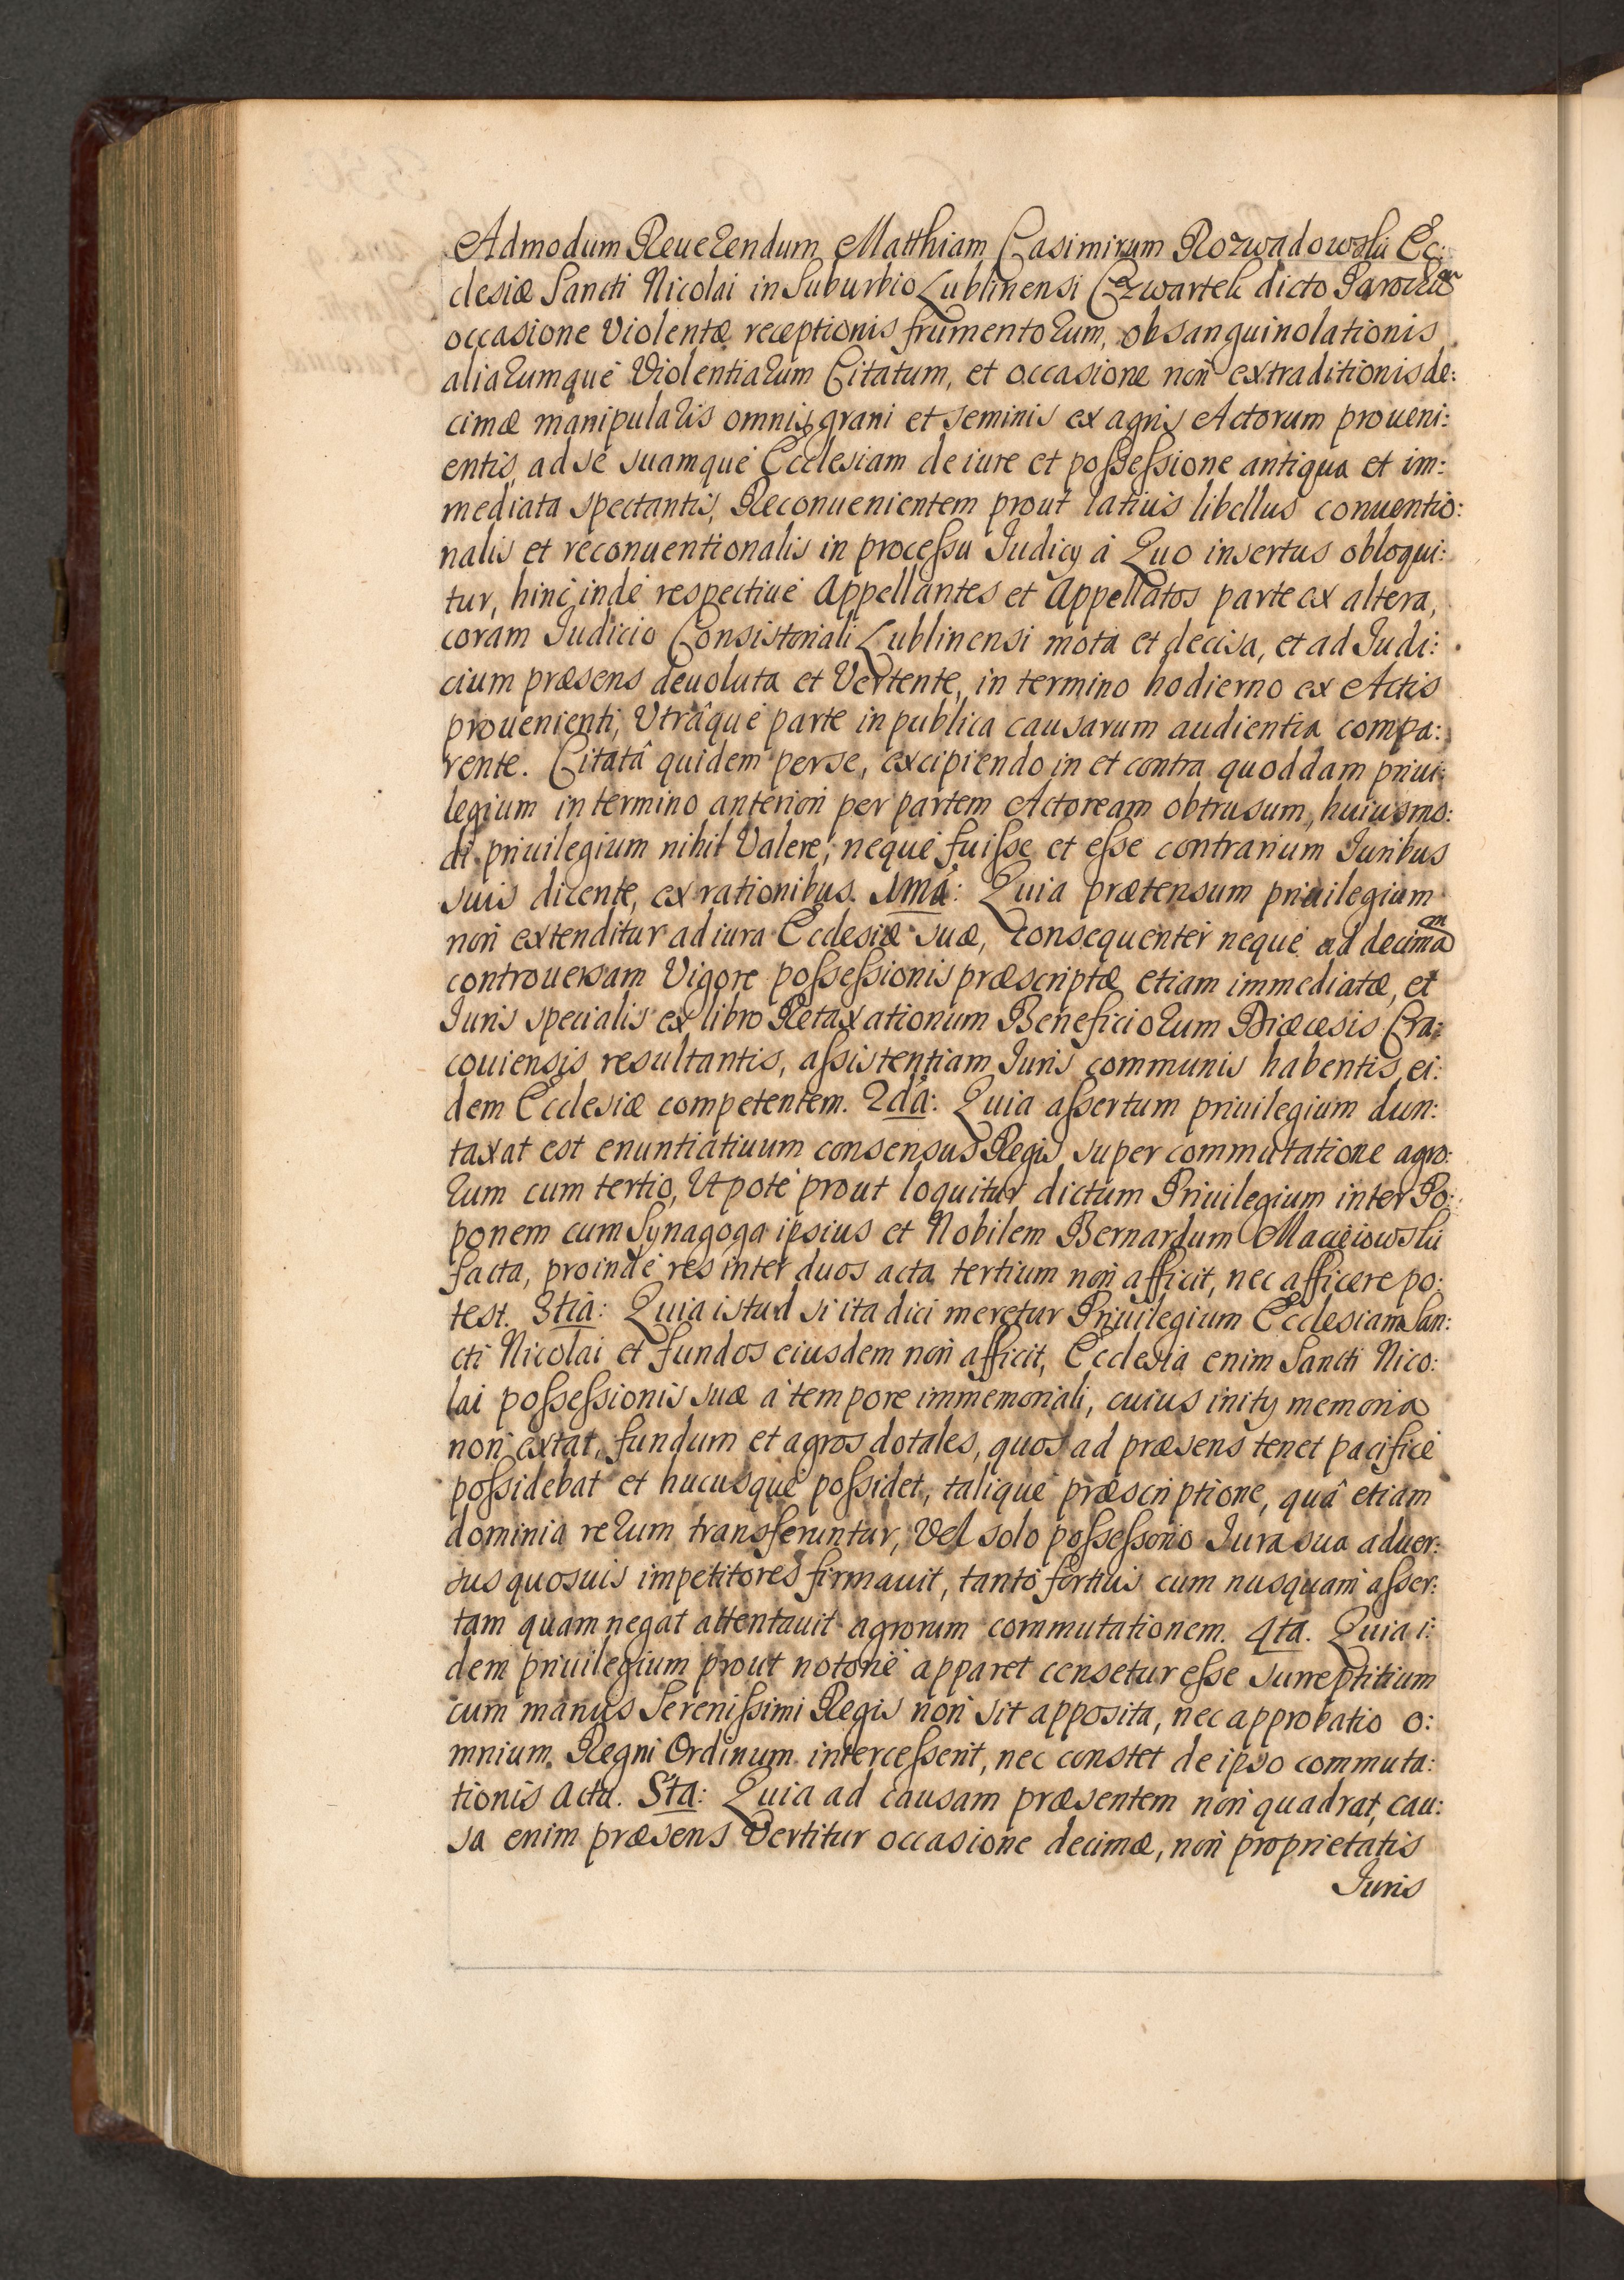 Admodum Reuerendum Matthiam Casimirum Rozwadowski Ec:
clesiæ Sancti Nicolai in Suburbio Lublinensi Czwartek dicto Parochum
occasione Violentæ receptionis frumentorum, obsanguinolationis
aliarumqué Violentiarum Citatum, et occasione non extraditionis de:
cimæ manipularis omnis grani et seminis ex agris Actorum proueni:
entis, ad sé suamqué Ecclesiam de iure et possessione antiqua et im:
mediata spectantis, Reconuenientem prout latius libellus conuentio:
nalis et reconuentionalis in processu Judicij á Quo insertus obloqui:
tur, hinc indé respectiué Appellantes et Appellatos parte ex altera,
coram Judicio Consistoriali Lublinensi mota et decisa, et ad Judi:
cium præsens deuoluta et Vertente, in termino hodierno ex Actis
prouenienti, Vtrâqué parte in publica causarum audientia compa:
rente. Citatâ quidem per se, excipiendo in et contra quoddam priui:
legium in termino anteriori per partem Actoream obtrusum, huiusmo:
di priuilegium nihil Valere, nequé fuisse et esse contrarium Juribus
suis dicente, ex rationibus. 1má: Quia prætensum priuilegium
non extenditur ad iura Ecclesiæ suæ, consequenter nequé ad decimam
controuersam Vigore possessionis præscriptæ etiam immediatæ, et
Juris specialis ex libro Retaxationum Beneficiorum Diæcesis Cra:
couiensis resultantis, assistentiam Juris communis habentis, ei:
dem Ecclesiæ competentem. 2dá: Quia assertum priuilegium dun:
taxat est enuntiatiuum consensus Regis super commutatione agro:
rum cum tertio, Vtpoté prout loquitur dictum Priuilegium inter Po:
ponem cum Synagoga ipsius et Nobilem Bernardum Macieiowski
facta, proindé res inter duos acta tertium non afficit, nec afficere po:
test. 3tiá: Quia istud si ita dici meretur Priuilegium Ecclesiam San:
cti Nicolai et fundos eiusdem non afficit, Ecclesia enim Sancti Nico:
lai possessionis suæ á tempore immemoriali, cuius initij memoria
non extat, fundum et agros dotales, quos ad præsens tenet pacificé
possidebat et hucusqué possidet, taliqué præscriptione, quâ etiam
dominia rerum transferuntur, Vel solo possessorio Jura sua aduer:
sus quosuis impetitores firmauit, tantó fortius cum nusquam asser:
tam quam negat attentauit agrorum commutationem. 4ta. Quia i:
dem priuilegium prout notorié apparet censetur esse surreptitium
cum manus Serenissimi Regis non sit apposita, nec approbatio o:
mnium Regni Ordinum intercesserit, nec constet de ipso commuta:
tionis acta. 5ta: Quia ad causam præsentem non quadrat, cau:
sa enim præsens Vertitur occasione decimæ, non proprietatis
Juris